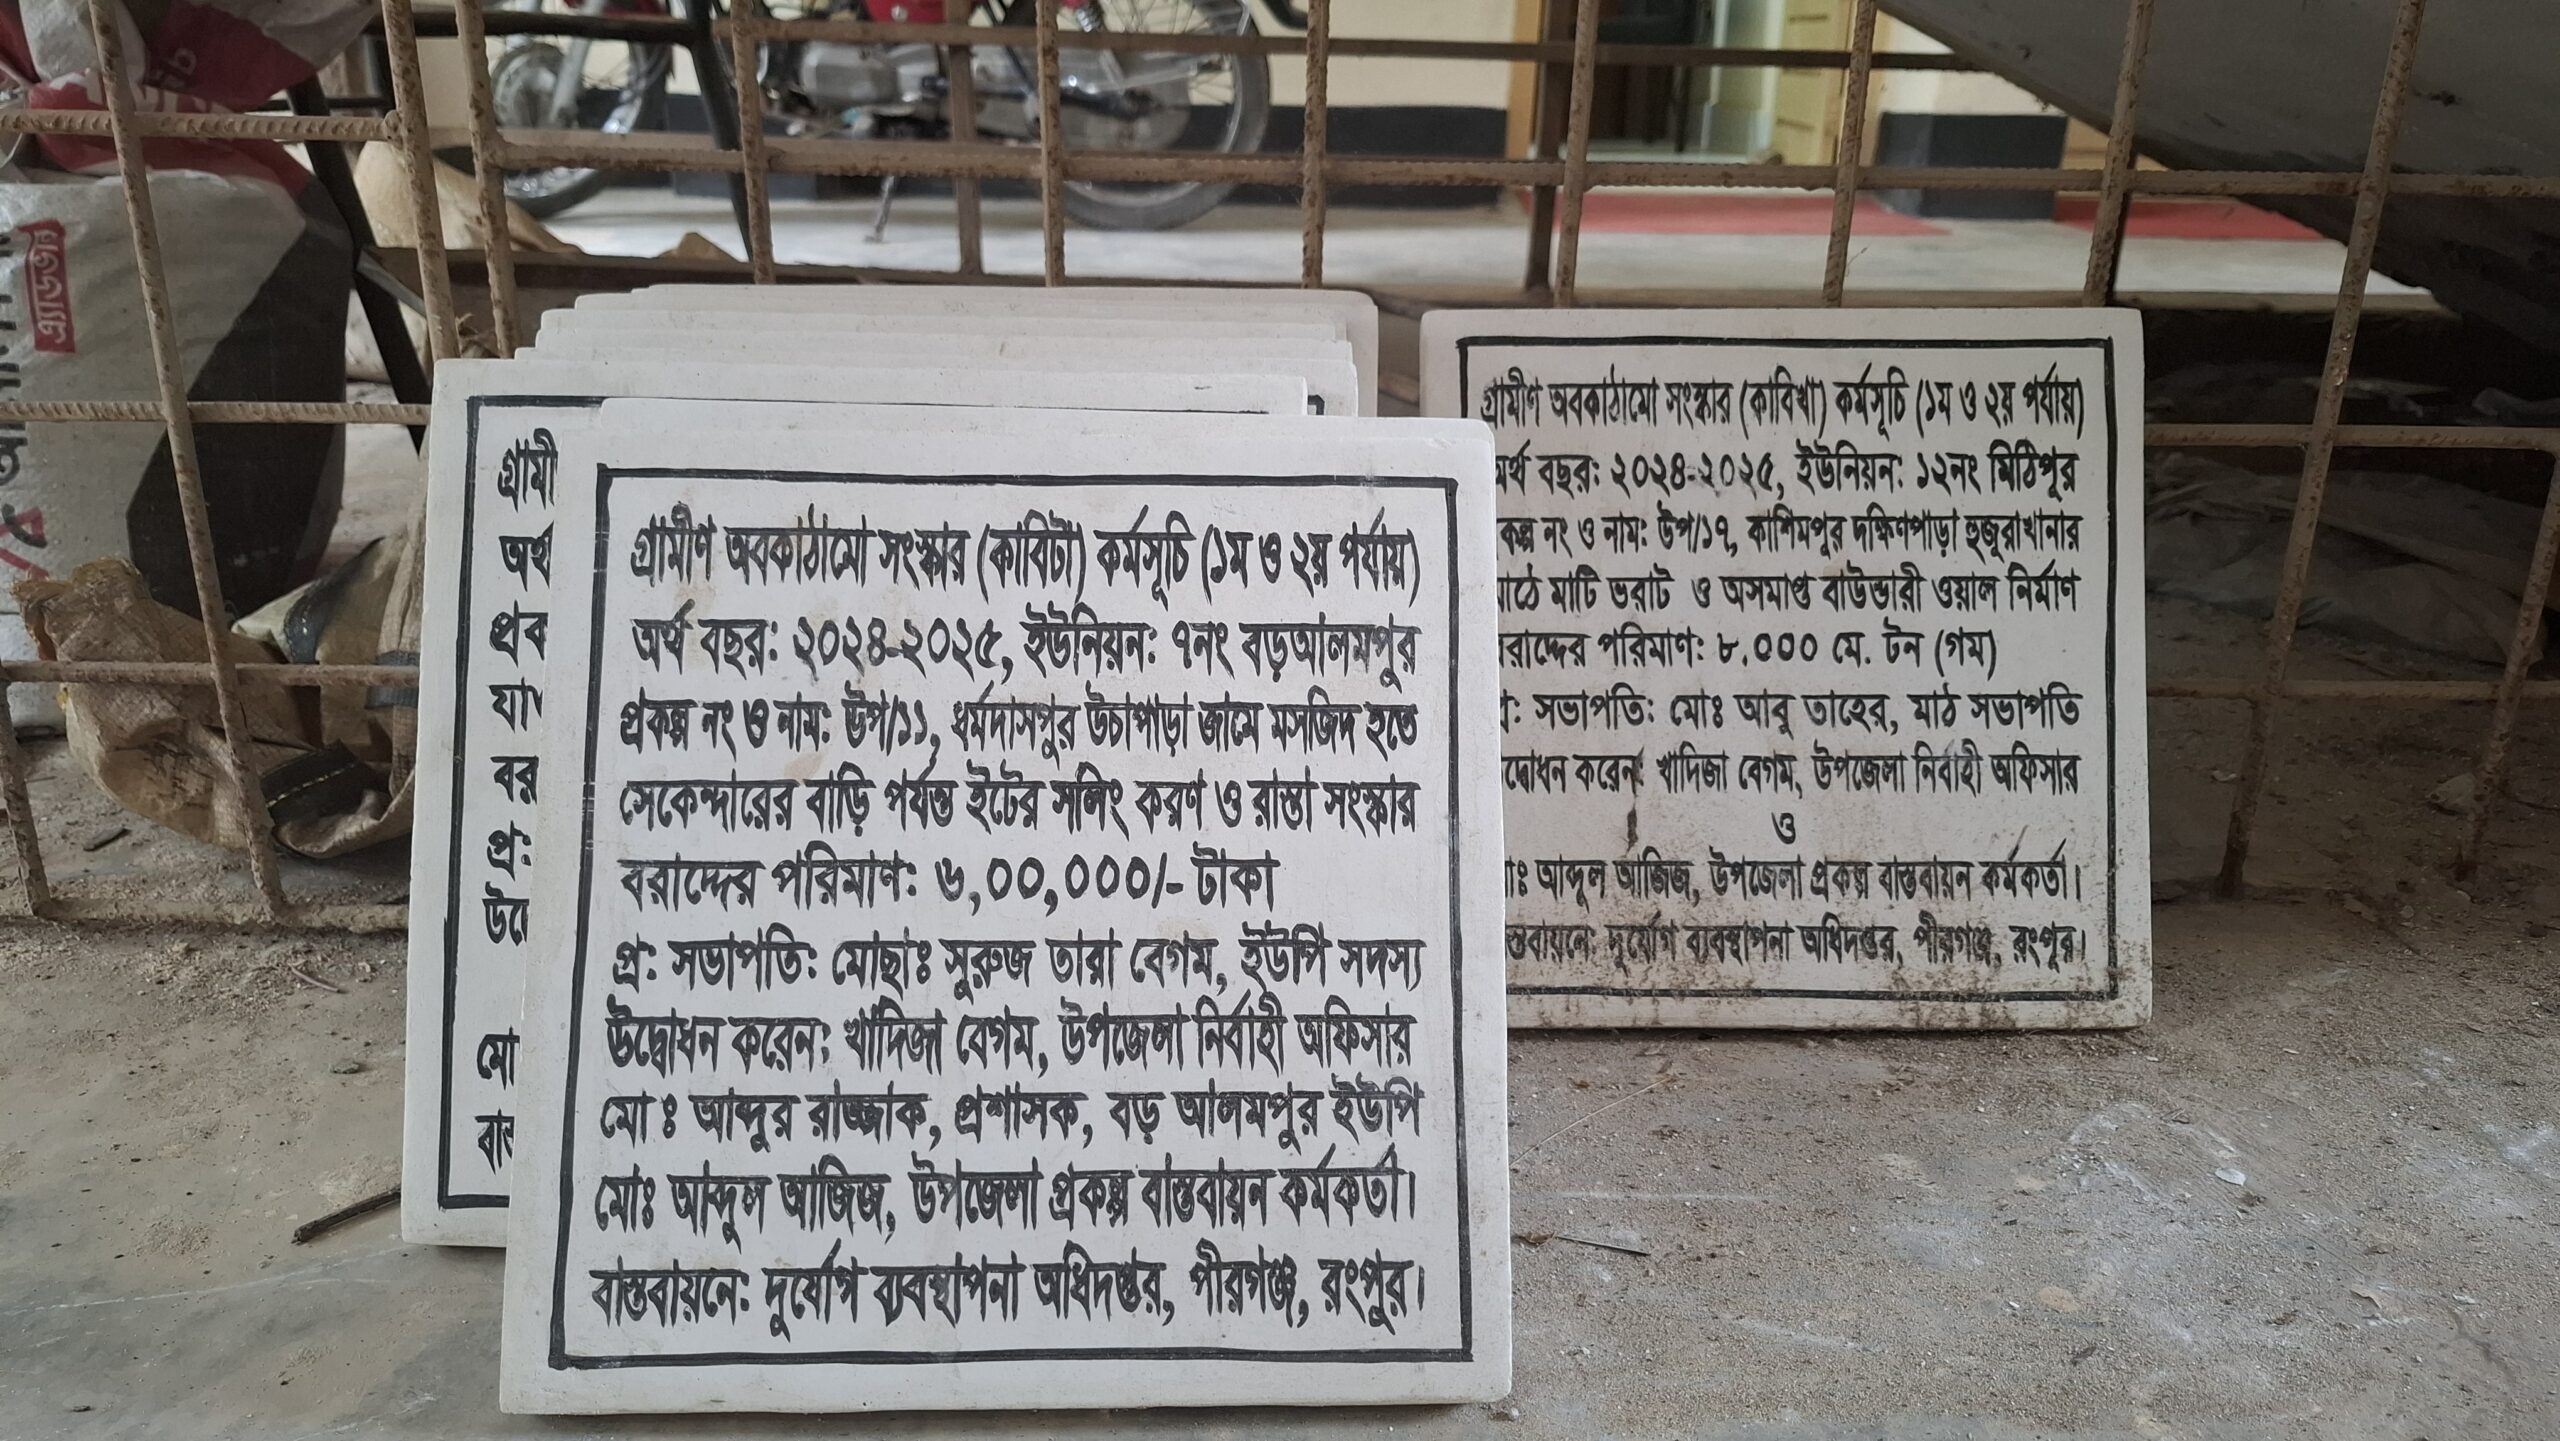 গ্রামীণ অবকাঠামো সংস্কার (কাবিটা) কর্মসূচি (১ম ও ২য় পর্যায়)
অর্থ বছর: ২০২৪-২০২৫, ইউনিয়ন: ৭নং বড়আলমপুর
প্রকল্প নং ও নাম: উপ/১১, ধর্মদাসপুর উচাপাড়া জামে মসজিদ হতে
সেকেন্দারের বাড়ি পর্যন্ত ইটের সলিং করণ ও রাস্তা সংস্কার
বরাদ্দের পরিমাণ: ৬,০০,০০০/- টাকা
প্র: সভাপতি: মোছাঃ সুরুজ তারা বেগম, ইউপি সদস্য
উদ্বোধন করেন: খাদিজা বেগম, উপজেলা নির্বাহী অফিসার
মো ঃ আব্দুর রাজ্জাক, প্রশাসক, বড় আলমপুর ইউপি
মোঃ আব্দুল আজিজ, উপজেলা প্রকল্প বাস্তবায়ন কর্মকর্তা।
বাস্তবায়নে: দুর্যোগ ব্যবস্থাপনা অধিদপ্তর, পীরগঞ্জ, রংপুর।
গ্রামীণ অবকাঠামো সংস্কার (কাবিখা) কর্মসূচি (১ম ও ২য় পর্যায়)
বছর: ২০২৪-২০২৫, ইউনিয়ন: ১২নং মিঠিপুর
নং ও নাম: উপ/১৭, কাশিমপুর দক্ষিণপাড়া হুজুরাখানার
মাটি ভরাট ও অসমাপ্ত বাউন্ডারী ওয়াল নির্মাণ
পরিমাণ: ৮.০০০ মে. টন (গম)
সভাপতি: মোঃ আবু তাহের, মাঠ সভাপতি
করেন: খাদিজা বেগম, উপজেলা নির্বাহী অফিসার
ও
আব্দুল আজিজ, উপজেলা প্রকল্প বাস্তবায়ন কর্মকর্তা।
দুর্যোগ ব্যবস্থাপনা অধিদপ্তর, পীরগঞ্জ, রংপুর।